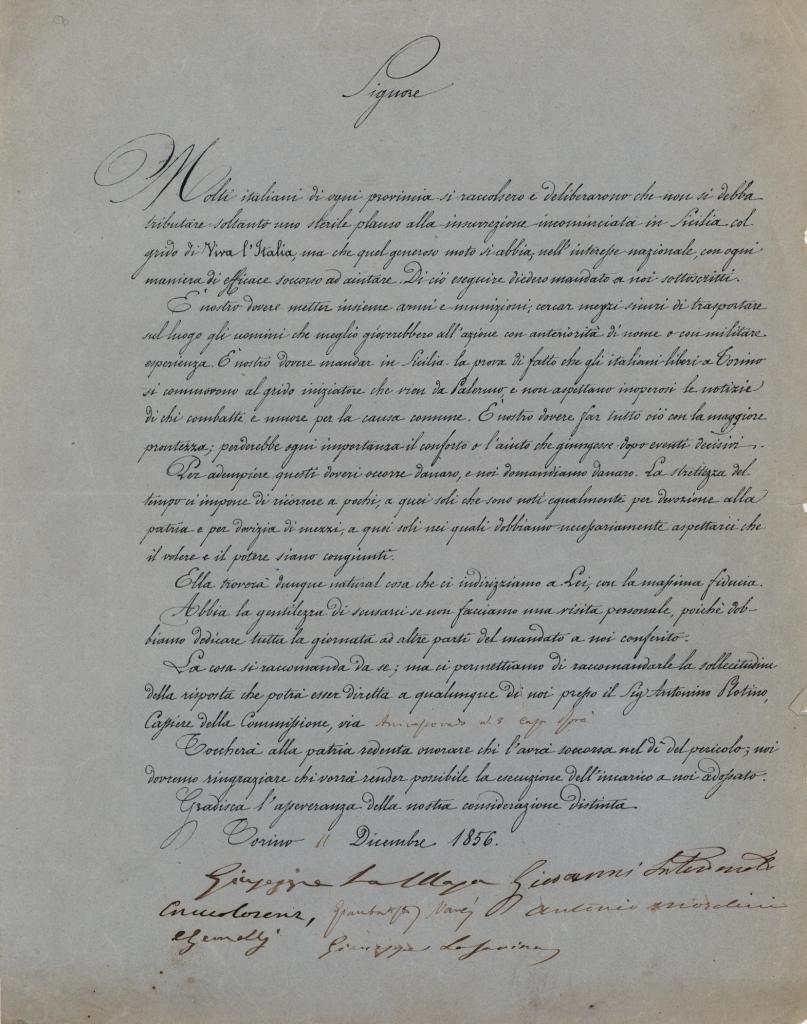 Signore
Molti italiani di ogni provincia si raccolsero e deliberarono che non si debba
tributare soltanto uno sterile plauso alla insurrezione incominciata in Sicilia col
grido di Viva l'Italia, ma che quel generoso moto si abbia, nell'interesse nazionale, con ogni
maniera di efficace soccorso ad aiutare. Di ciò eseguire diedero mandato a noi sottoscritti.
È nostro dovere metter insieme armi e munizioni; cercar mezzi sicuri di trasportare
sul luogo gli uomini che meglio gioverebbero all'azione con anteriorità di nome o con militare
esperienza. È nostro dovere mandar in Sicilia la prova di fatto che gli italiani liberi a Torino
si commovono al grido iniziatore che vien da Palermo, e non aspettano inoperosi le notizie
di chi combatte e muore per la causa comune. È nostro dovere far tutto ciò con la maggiore
prontezza; perderebbe ogni importanza il conforto o l'aiuto che giungesse dopo eventi decisivi.
Per adempiere questi doveri occorre danaro, e noi domandiamo danaro. La strettezza del
tempo ci impone di ricorrere a pochi, a quei soli che sono noti egualmente per devozione alla
patria e per dovizia di mezzi, a quei soli nei quali dobbiamo necessariamente aspettarci che
il volere e il potere siano congiunti.
Ella troverà dunque natural cosa che ci indirizziamo a Lei, con la massima fiducia.
Abbia la gentilezza di scusarci se non facciamo una visita personale, poiché dob-
biamo dedicare tutta la giornata ad altre parti del mandato a noi conferito.
La cosa si raccomanda da se; ma ci permettiamo di raccomandarle la sollecitudine
della risposta che potrà esser diretta a qualunque di noi presso il Sig Antonino Plotino,
Cassiere della Commissione, via
Toccherà alla patria redenta onorare chi l'avrà soccorsa nel dì del pericolo; noi
dovremo ringraziare chi vorrà render possibile la esecuzione dell'incarico a noi adossato.
Gradisca l'asseveranza della nostra considerazione distinta
Torino 11 Dicembre 1856.
Giuseppe La Masa Giovanni Interdonato
Antonio Mordini
Giuseppe